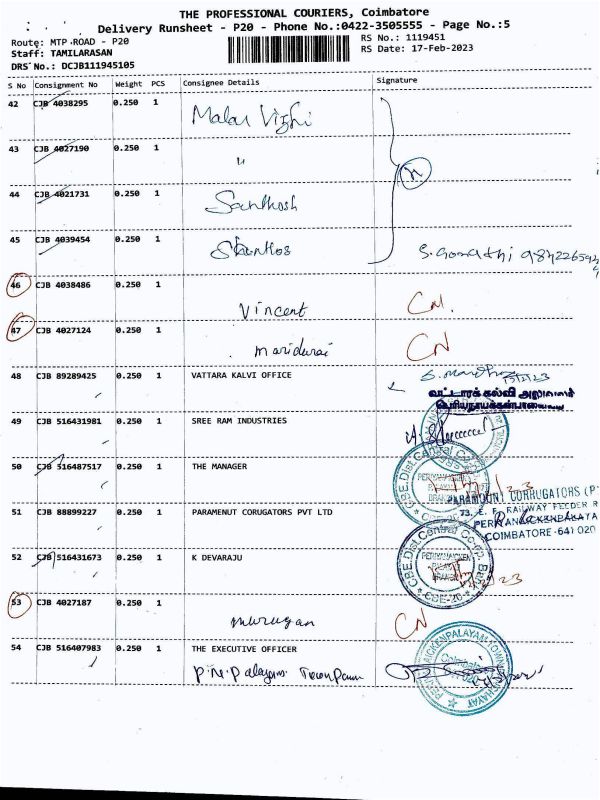 THE PROFESSIONAL COURIERS, Coimbatore
Delivery Runsheet - P20 - Phone No.:0422-3505555 - Page No.:5
Route: MTP ROAD - P20
RS No.: 1119451
Staff: TAMILARASAN
RS Date: 17-Feb-2023
DRS No.: DCJB111945105
S No Consignment No Weight PCS Consignee Details Signature
42 CJB 4038295 0.250 1 Malar Vizhi
43 CJB 4027190 0.250 1 "
44 CJB 4021731 0.250 1 Santhosh
45 CJB 4039454 0.250 1
46 CJB 4038486 0.250 1 Vincent CN.
47 CJB 4027124 0.250 1 Maridurai CN
48 CJB 89289425 0.250 1 VATTARA KALVI OFFICE
வட்டாரக் கல்வி அலுவலர்
49 CJB 516431981 0.250 1 SREE RAM INDUSTRIES
50 CJB 516487517 0.250 1 THE MANAGER
PARAMOUNT CORRUGATORS (P
51 CJB 88899227 0.250 1 PARAMENUT CORUGATORS PVT LTD
73, E. F. RAILWAY FEEDER R
COIMBATORE-641 020
52 CJB 516431673 0.250 1 K DEVARAJU
CBE.Dist.Central
CBE-20
53 CJB 4027187 0.250 1 Murugan CN
54 CJB 516407983 0.250 1 THE EXECUTIVE OFFICER
P.N.Palayam Town Pan